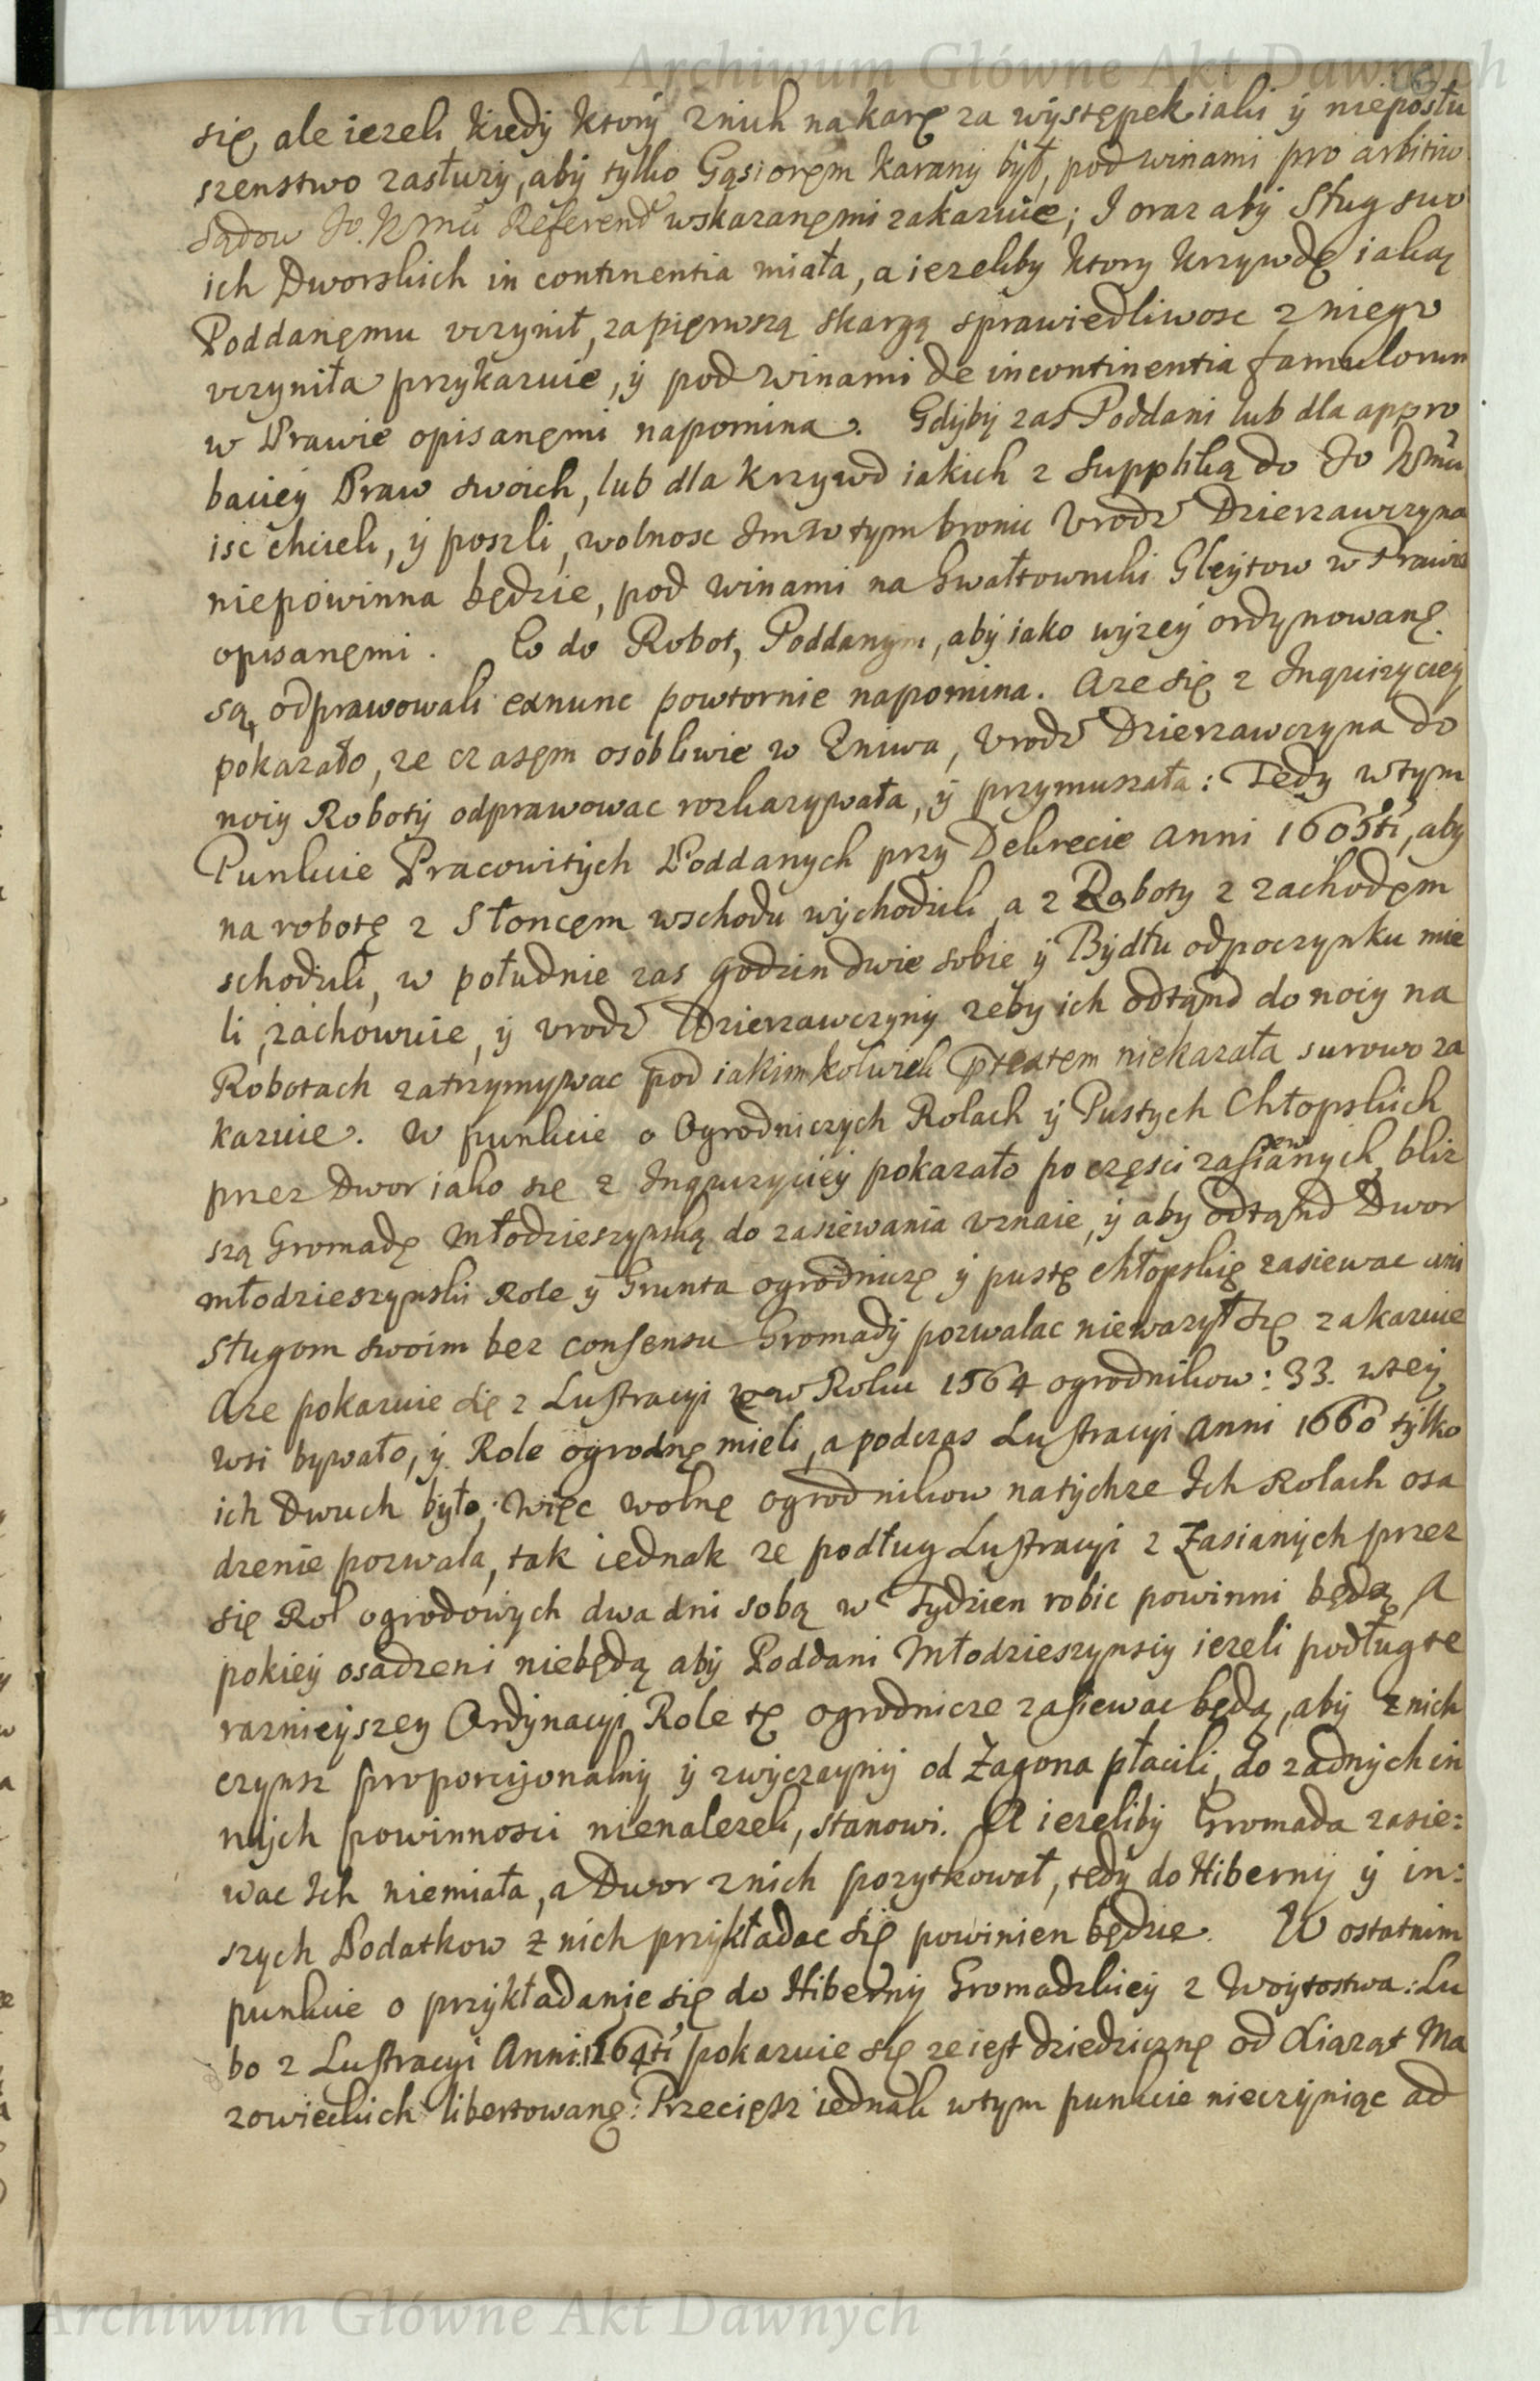 Archiwum Główne Akt Dawnych
się, ale iezeli kiedy ktory z nich na karę za występek iaki y nieposłu
szenstwo zasłuzy, aby tylko Gąsioręm karany był, pod winami pro arbitrio
Sądow Jo. K Mci Referend wskazanęmi zakazuie; I oraz aby Sług swo
ich Dworskich in continentia miała, a iezeliby ktory krzywdę iaką
Poddanęmu uczynił, za pięrwszą skargą sprawiedliwosc z niego
uczyniła przykazuie, y pod winami de incontinentia famulorum
w Prawie opisanęmi napomina. Gdyby zas Poddani lub dla appro
baciey Praw swoich, lub dla krzywd iakich z Suppliką do Jo Kmci
isc chcieli, y poszli, wolnosc Im w tym bronic Urodz Dzierzawczyna
niepowinna będzie, pod winami na Gwałtowniki Gleytow w Prawie
opisanęmi. Co do Robot, Poddanym, aby iako wyzey ordynowanę
są, odprawowali exnunc powtornie napomina. Aze się z Inquizyciey
pokazało, ze czasęm osobliwie w Zniwa, Urodz Dzierzawczyna do
nocy Roboty odprawowac rozkazywała, y przymuszała: Tedy w tym
Punkcie Pracowitych Poddanych przy Dekrecie Anni 1605ti, aby
na robotę z Słoncęm wschodu wychodzili, a z Roboty z zachodęm
schodzili, w południe zas godzin dwie sobie y Bydłu odpoczynku mie
li, zachowuie, y Urodz Dzierzawczyny zeby ich odtąnd do nocy na
Robotach zatrzymywac pod iakimkolwiek ptextem niekazała surowo za
kazuie. W punkcie o Ogrodniczych Rolach y Pustych Chłopskich
przez Dwor iako się z Inquizyciey pokazało po częsci zasianych, bliz
szą Gromadę Młodzieszynską do zasiewania uznaie, y aby odtąnd Dwor
Młodzieszynski Role y Grunta ogrodniczę y pustę chłopskię zasiewac ani
Sługom swoim bez consensu Gromady pozwalac niewazył się zakazuie
Aze pokazuie się z Lustracyi ze w Roku 1564 ogrodnikow: 33. w tey
wsi bywało, y Role ogrodnę mieli, a podczas Lustracyi Anni 1660 tylko
ich Dwuch było; Więc wolnę ogrodnikow na tychze Ich Rolach osa
dzenie pozwala, tak iednak ze podług Lustracyi z Zasianych przez
się Rol ogrodowych dwa dni sobą w Tydzien robic powinni będą A
pokiey osadzeni niebędą aby Poddani Młodzieszynscy iezeli podług te
raznieyszey Ordynacyi Role tę ogrodnicze zasiewac będą, aby z nich
czynsz proporcyonalny y zwyczayny od Zagona płacili, do zadnych in
nych powinnosci nienalezeli, stanowi. A iezeliby Gromada zasie:
wac Ich niemiała, a Dwor z nich pozytkował, tedy do Hiberny y in:
szych Podatkow z nich przykładac się powinien będzie. W ostatnim
punkcie o przykładanie się do Hiberny Gromadzkiey z Woytostwa: Lu
bo z Lustracyi Anni 1564ti pokazuie się ze iest dziedzicznę od Xiąząt Ma
zowieckich libertowanę: Przecięsz iednak w tym punkcie nieczyniąc ad
Archiwum Główne Akt Dawnych